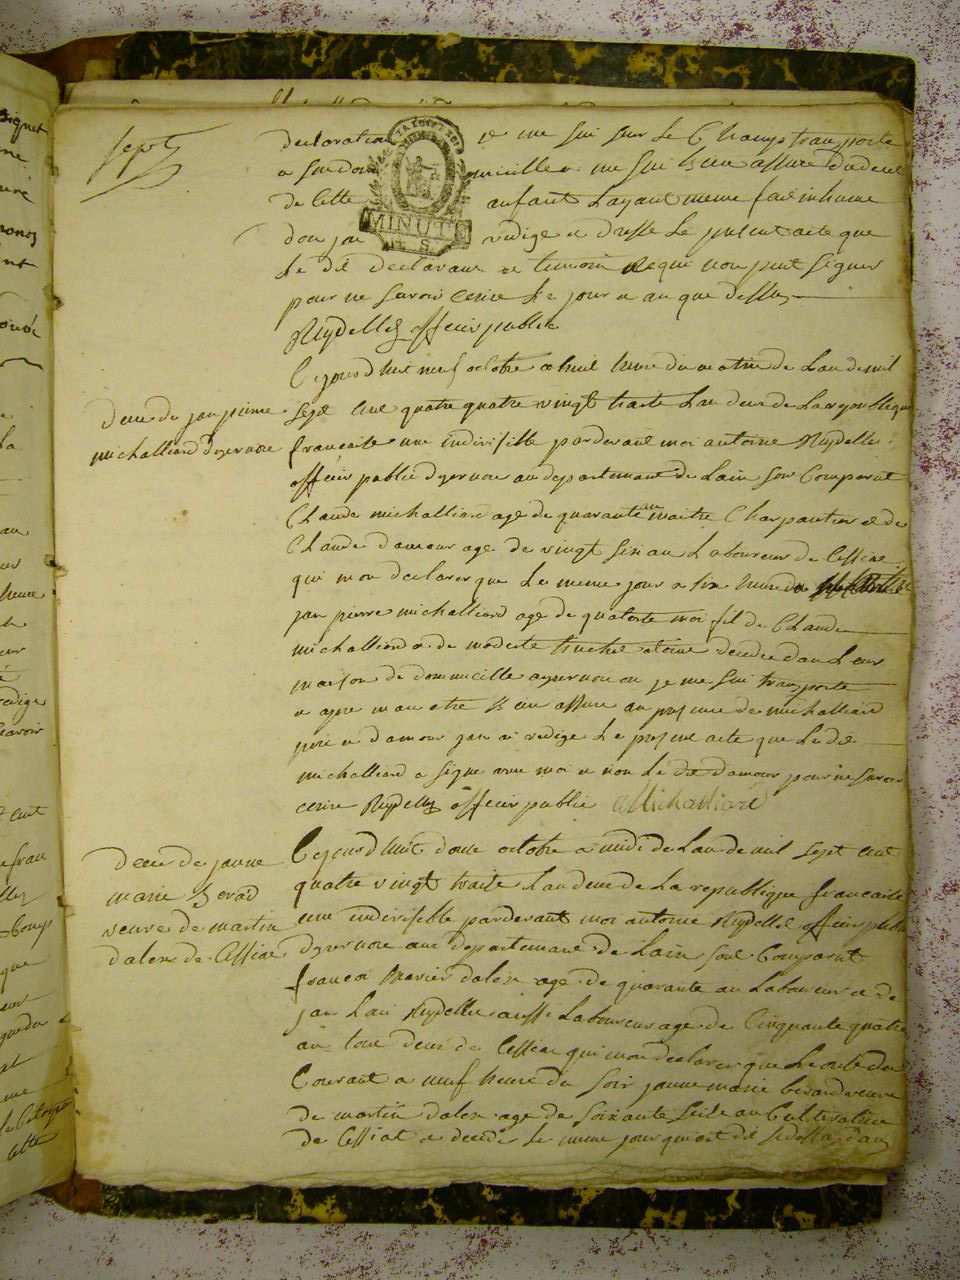 sept
declaration je me sui sur le Champ transporte
a son domicille je me sui assure du deces
de cette enfant layant meme fait inhume
don jai redige a dresse le present acte que
le dit declarant temoin requi non peut signer
pour ne savoir ecrire le jour a an que dessus
Reydellet officier public
dece de jan pierre
michalliard dyzernore
Cejourdhui neuf octobre a huit heure du matin de Lan de mil
sept cent quatre vingt traise Lan deux de La republique
francaise une indivisible pardevant moi antoine Reydellet
officier public dyzernore au departement de Lain son Comparut
Claude michalliard age de quarante maitre Charpantier et de
Claude damour age de vingt six an Laboureur de Cessiat
qui mon declarer que Le meme jour a six heure du
jan pierre michalliard age de quatorse moi fil de Claude
michalliard a de modeste decede dan Leur
maison de domicille ayzernore ou je me sui transporte
a apre man etre assure an presence de michalliard
pere a damour jan ai redige Le present acte que Le dit
michalliard a signe avec moi a non Le dit damour pour ne savoir
ecrire Reydellet officier public Michalliard
dece de janne
marie berard
veuve de martin
dalex de Cessiat
Cejourdhuit douse octobre a midi de Lan de mil sept cent
quatre vingt traise Lan deux de La republique francaise
une indivisible pardevant moi antoine Reydellet officier public
dyzernore au departement de Lain sont Comparut
francoi dalex age de quarante an Laboureur a de
jan Reydellet aussi Laboureur age de Cinquante quatre
an tous deux de Cessiat qui mon declarer que Le onse du
Courant a neuf heure du soir janne marie berard veuve
de martin dalex age de soixante seise an Cultivatrice
de Cessiat a decede Le meme jour qui est dit si dessus dan
MINUTE